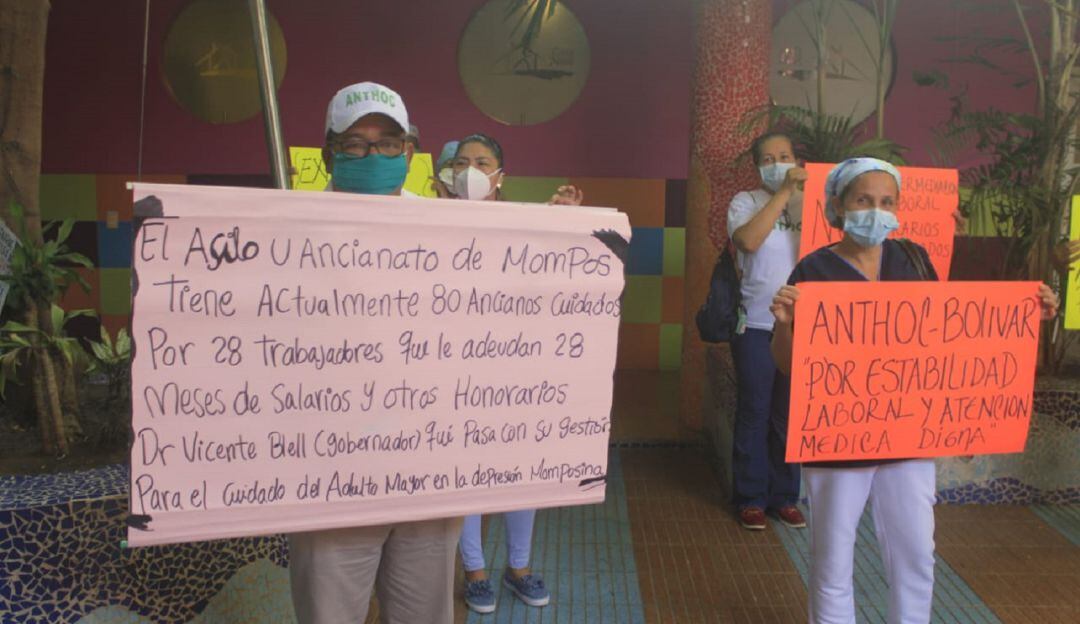 ANTHOC
EX
El Asilo U Ancianato de MomPos
Tiene Actualmente 80 Ancianos Cuidados
Por 28 Trabajadores Que le adeudan 28
Meses de Salarios y otros Honorarios
Dr Vicente Blell (gobernador) qui Pasa con su gestión
Para el Cuidado del Adulto Mayor en la depresión Momposina
ERMEDIA
BORAL
ARIOS
ADOS
ANTHOC-BOLIVAR
"POR ESTABILIDAD
LABORAL Y ATENCION
MEDICA DIGNA"